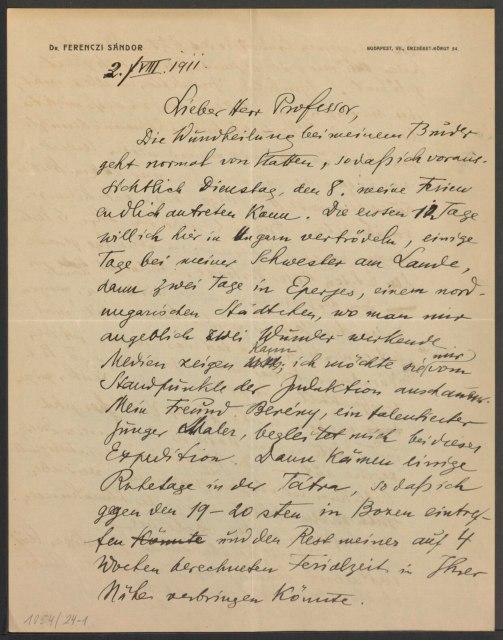 Dr. FERENCZI SÁNDOR
BUDAPEST, VII., ERZSÉBET-KÖRÚT 54.
2./VIII. 1911.
Lieber Herr Professor,
Die Wundheilung bei meinem Bruder
geht normal von statten, sodaß ich voraus-
sichtlich Dienstag, den 8. meine Ferien
endlich antreten kann. Die ersten 10 Tage
will ich hier in Ungarn vertrödeln, einige
Tage bei meiner Schwester am Lande,
dann zwei Tage in Eperjes, einem nord-
ungarischen Städtchen, wo man mir
angeblich zwei Wunder wirkende
Medien zeigen kann; ich möchte sie mir vom
Standpunkte der Induktion anschauen.
Mein Freund Berény, ein talentierter
junger Maler, begleitet mich bei dieser
Expedition. Dann kämen einige
Ruhetage in der Tátra, sodaß ich
gegen den 19–20sten in Bozen eintref-
fen könnte und den Rest meiner auf 4
Wochen berechneten Ferialzeit in Ihrer
Nähe verbringen könnte.
1054/24-1